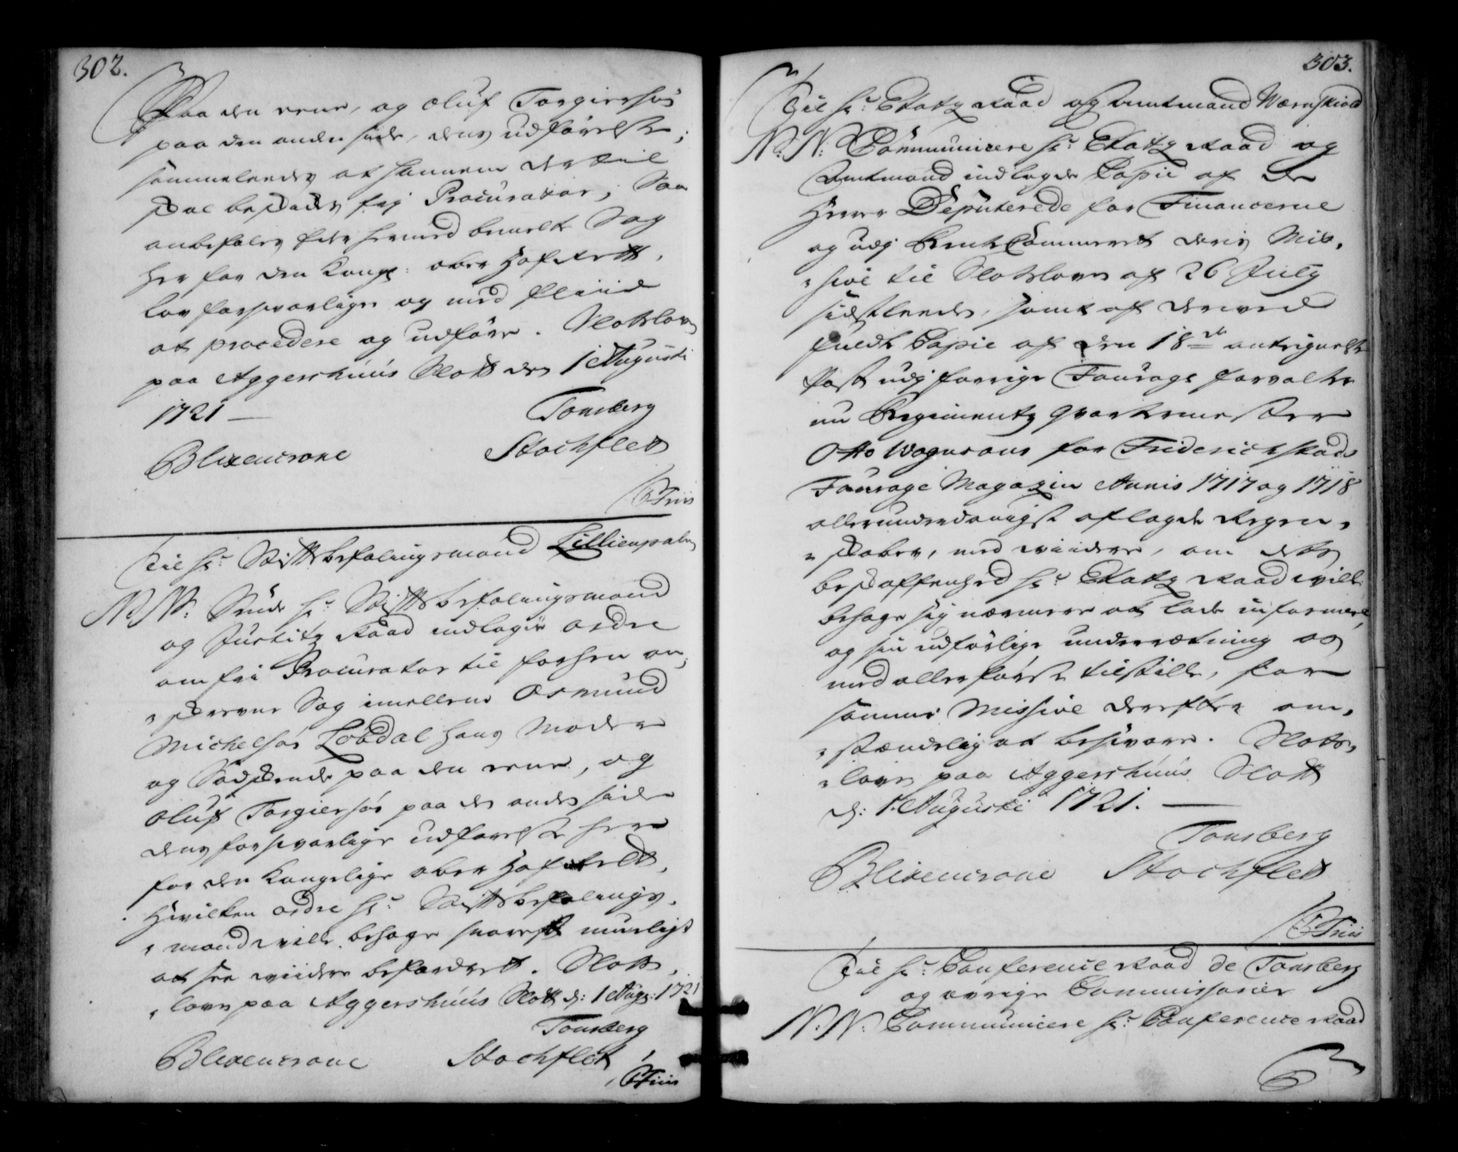 302.
Paa den eene, og Oluf Torgiersøn
paa den anden side, dens udførelse;
sammeleedes at hannem dertil
skal beskædes frj Procurator; Saa
anbefales hermed bemelte Sag
her for den Kongl: ober Hof Rett,
lovforsvarligen og med fliid
at procedere og udføre. Slotzlov
paa Aggershuus Slott den 1 Augusti
1721 Tonsberg
Blixencrone Stochfleth
CFriis
Til Hr. Stiftsbefalingsmand Lillienpalm
N: N: Sende Hr. Stiftsbefalingsmand
og Justitz Raad indlagde ordre
om fri Procurator til forhen an,
skrevne Sag imellem Osmund
Michelsøn Løbdal hans Moder
og Sødskende paa den eene, og
Oluf Torgiersøn paa den anden side
dens forsvarlige udførelse her
for den Kongelige ober Hof Rett,
Hvilken ordre Hr. Stiftsbefalings,
mand ville behage snarest mueligst
at see widere befordret. Slotz,
lov paa Aggershuus Slott d: 1 Aug: 1721
Tonsberg
Blixencrone Stochfleth
CFriis
303.
Til Hr. Etatz Raad og Amtmand Wærnskiold
N: N: Communicere Hr. Etatz Raad og
Amtmand indlagde Copie af De
Herrer Deputerede for Financerne
og udj Rente Cammeret deris Mis,
sive til Slotzloven af 26 July
sidstleeden, samt af derved
fuldt Copie af den 18de antegnelse
Post udj forrige Fourage forvalter
nu Regimentz Qvarteermester
Otto Wognsøns for Friderichstads
Fourage Magazin Annis 1717 og 1718
allerunderdanigst aflagde Regen,
skaber, med widere, om dets
beskaffenhed Hr. Etatz Raad will
behage sig nærmere at lade informere,
og sin udførlige underretning os
med allerførste tilstille, for
samme Missive derefter om,
stændelig at besvare. Slotz,
lov paa Aggershuus Slott
d: 1 Augusti 1721.
Tonsberg
Blixencrone Stochfleth
CFriis
Til Hr. Conference Raad de Tonsberg
og øvrige Commissarier
N: N: Communicere Hr. Conference Raad